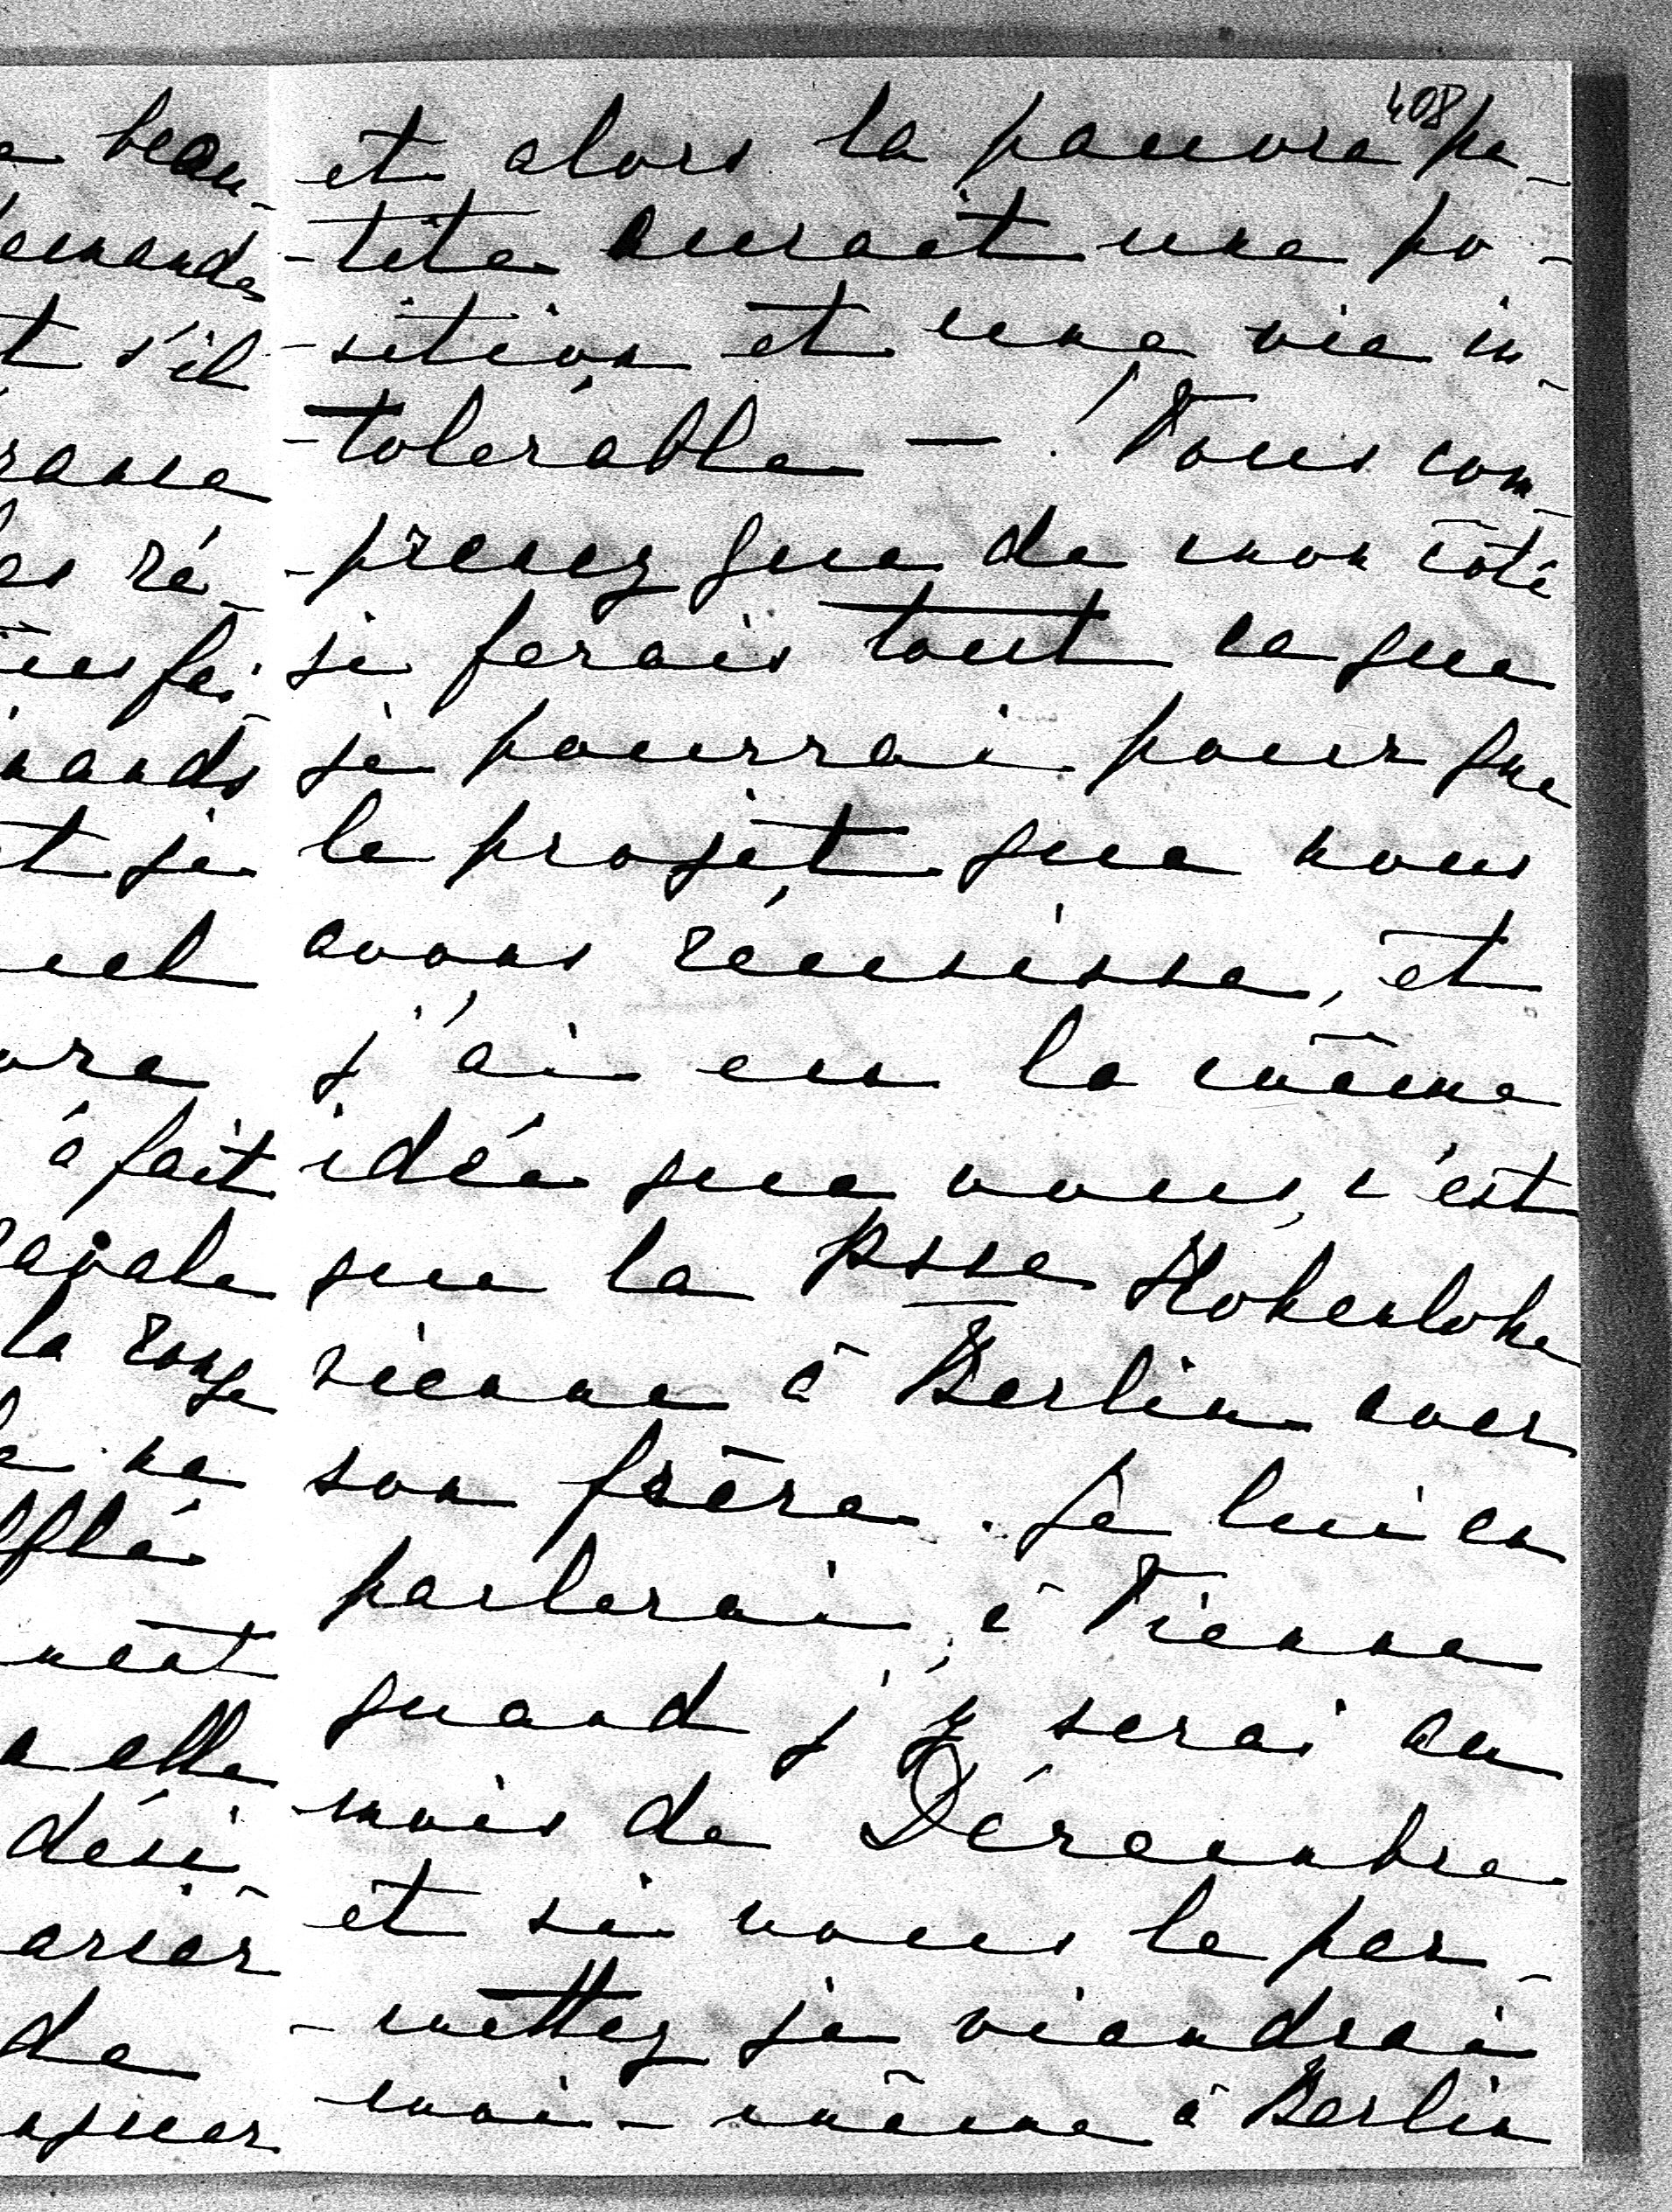 408
et alors la pauvre pe-
-tite aurait une po-
-sition et une vie in-
-tolerable — ! Vous com-
-prenez que de mon côté
je ferais tout ce que
je pourrai pour que
le projet que nous
avons réussisse, et
j'ai eu la même
idée que vous, c'est
que la Psse Hohenlohe
vienne à Berlin avec
son frère. Je lui en
parlerai, à Vienne
quand j'y serai au
mois de Décembre
et si vous le per-
-mettez je viendrai
moi-même à Berlin
beau-
s'il
ré-
fai-
et je
à fait
la
ne
elle
dési-
de